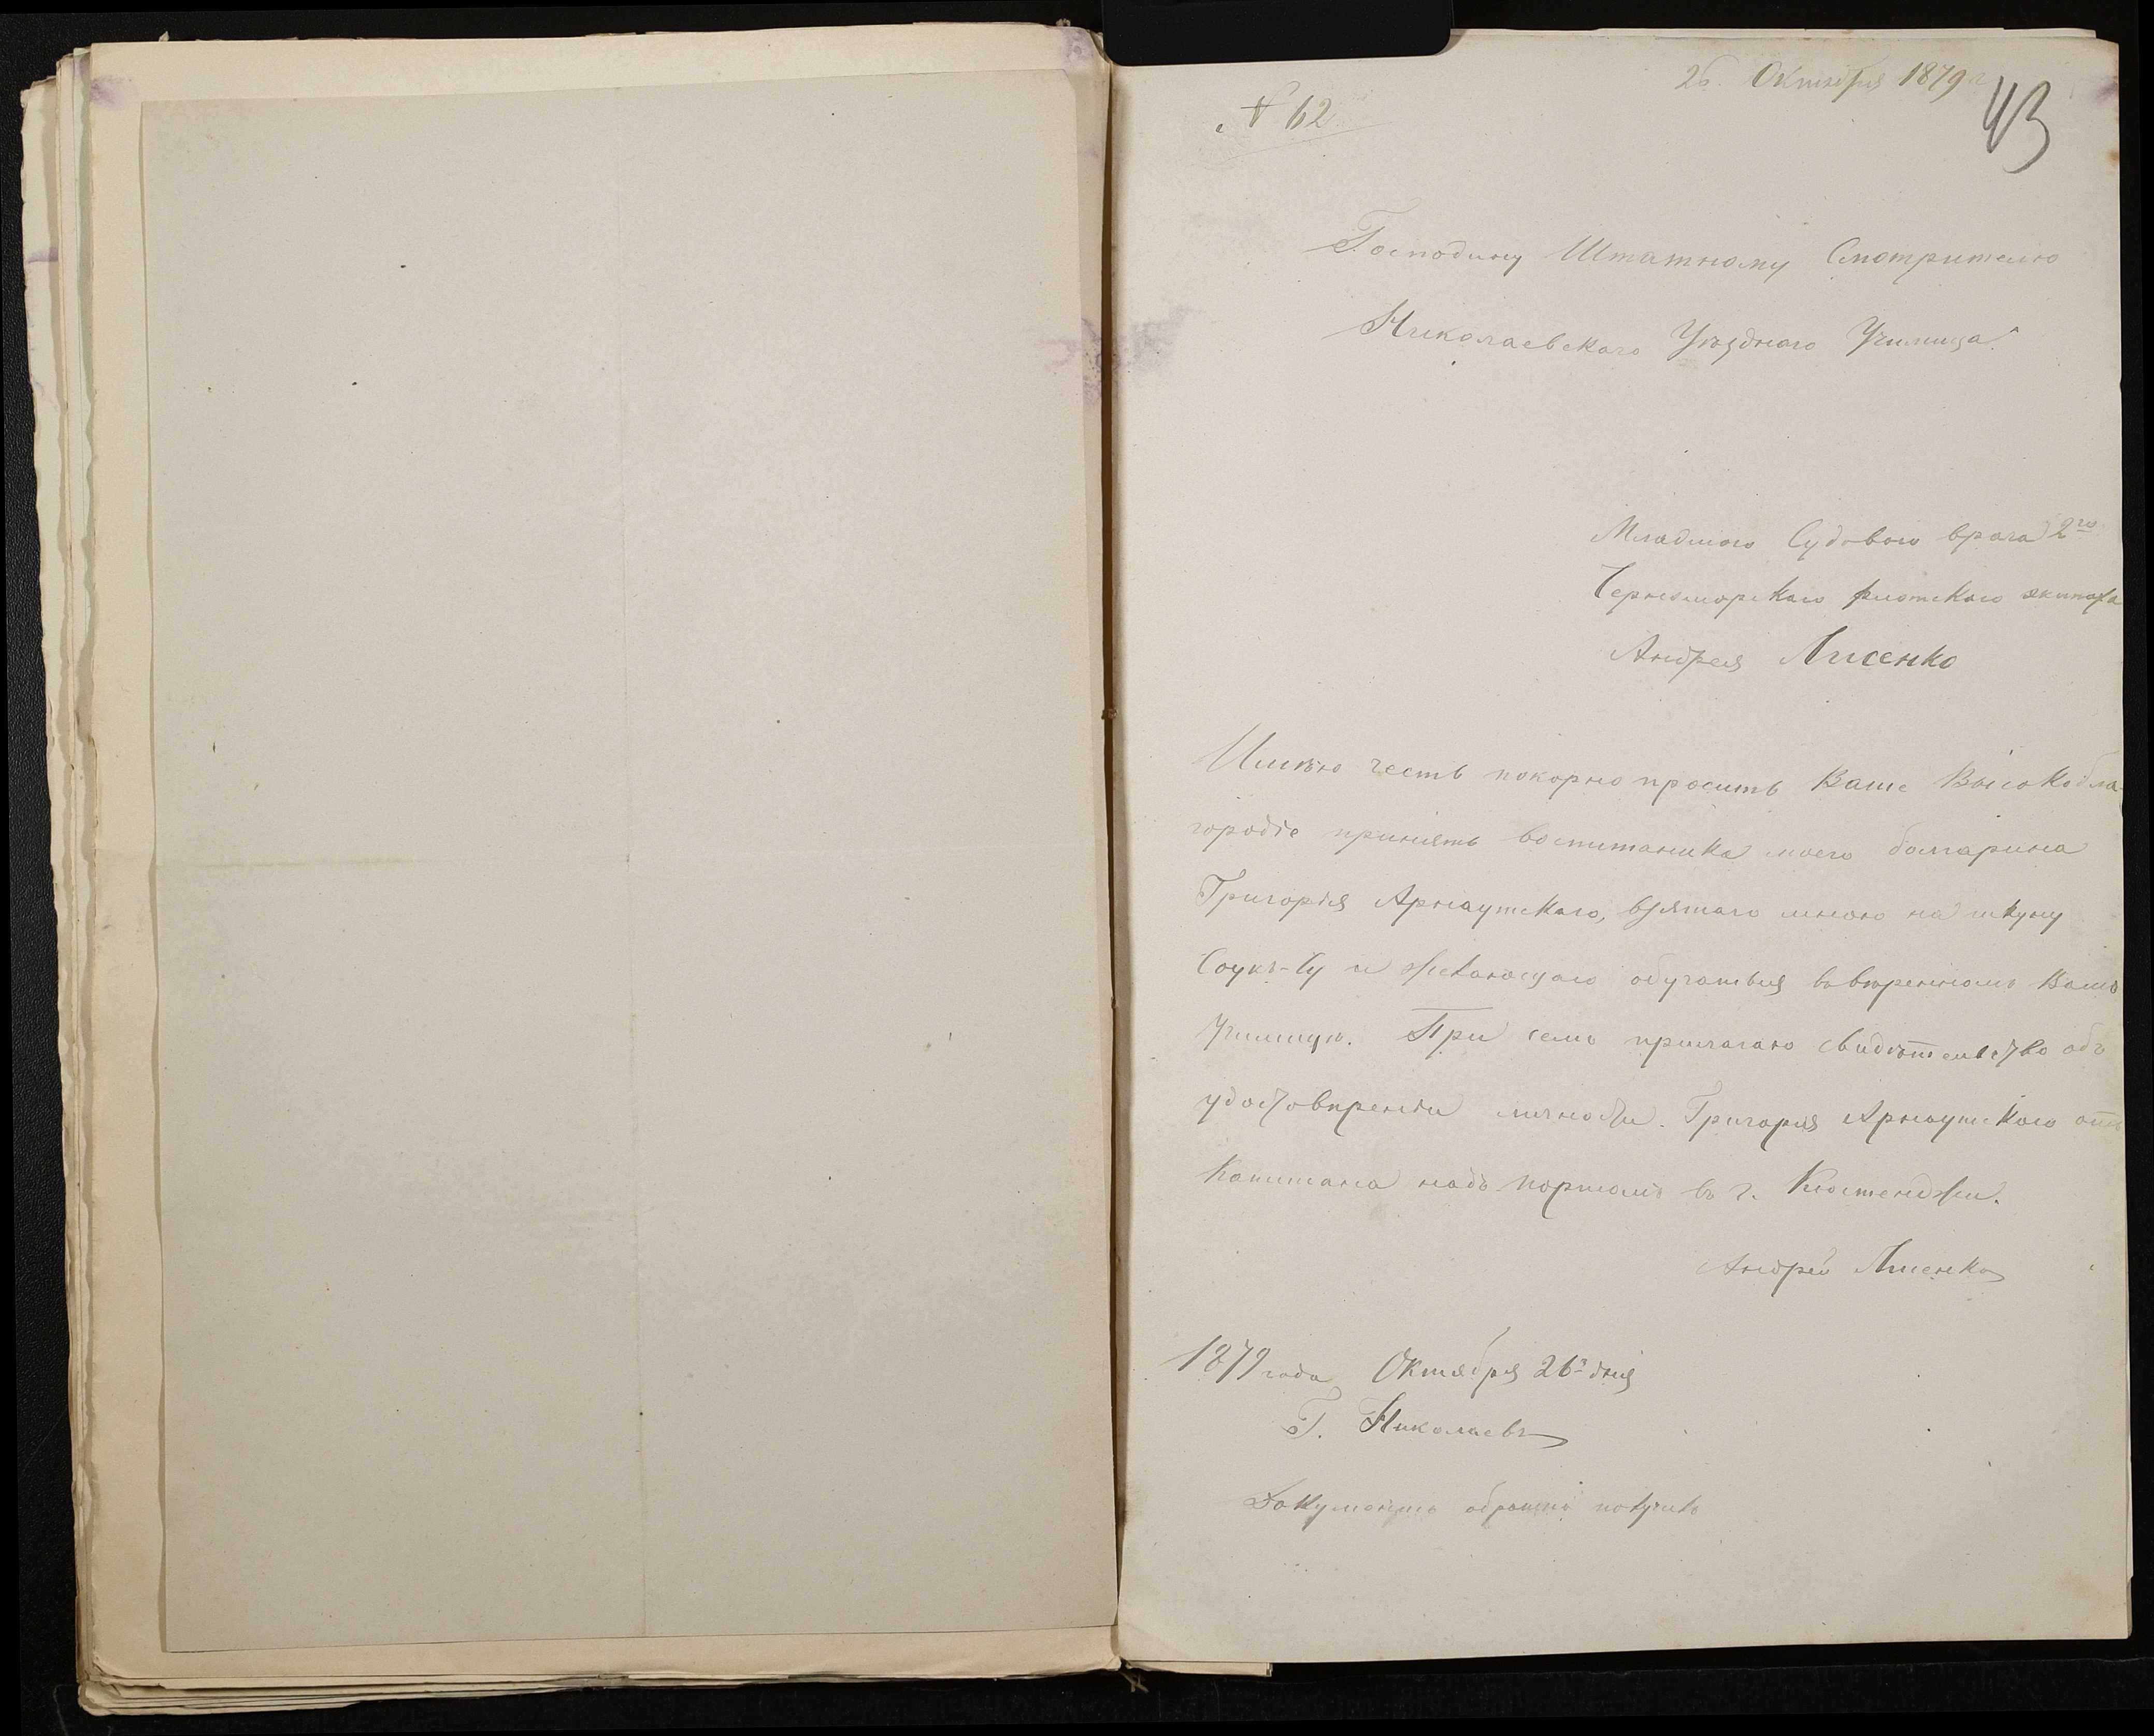 26 Октября 1879 г
№ 62
43
Господину Штатному Смотрителю
Николаевскаго Уѣзднаго Училища
Младшаго Судоваго врача 2го
Черноморскаго флотскаго экипажа
Андрея Лисенко
Имѣю честь покорно просить Ваше Высокобла-
городіе принять воспитаника моего болгарина
Григорія Арнаутскаго, взятаго мною на шкуну
Соукъ-Су и желающаго обучаться во ввѣренномъ Вамъ
Училищѣ. При семъ прилагаю свидѣтельство объ
удостовѣреніи личности Григорія Арнаутскаго отъ
Капитана надъ портомъ въ г. Кюстенджи.
Андрей Лисенко
1879 года Октября 26го дня
Г. Николаевъ
Документъ обратно получилъ